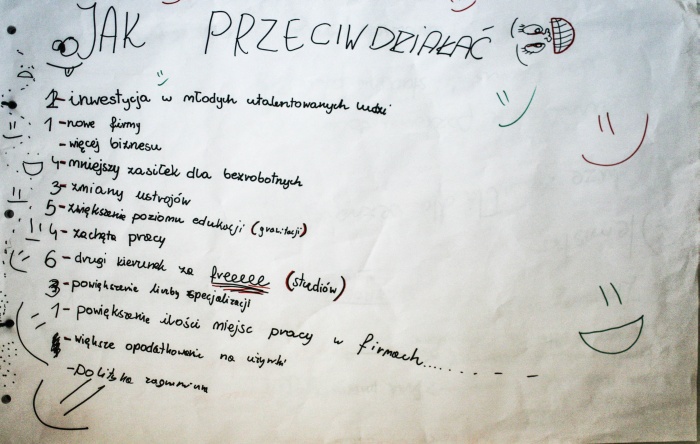 JAK PRZECIWDZIAŁAĆ
2- inwestycja w młodych utalentowanych ludzi
1 - nowe firmy
- więcej biznesu
4- mniejszy zasiłek dla bezrobotnych
3- zmiany ustrojów
5- zwiększenie poziomu edukacji (grawitacji)
4- zachęta pracy
6 - drugi kierunek za freeeee (studiów)
3- powiększenie liczby specjalizacji
1- powiększenie ilości miejsc pracy w firmach.......
- większe opodatkowanie na używki